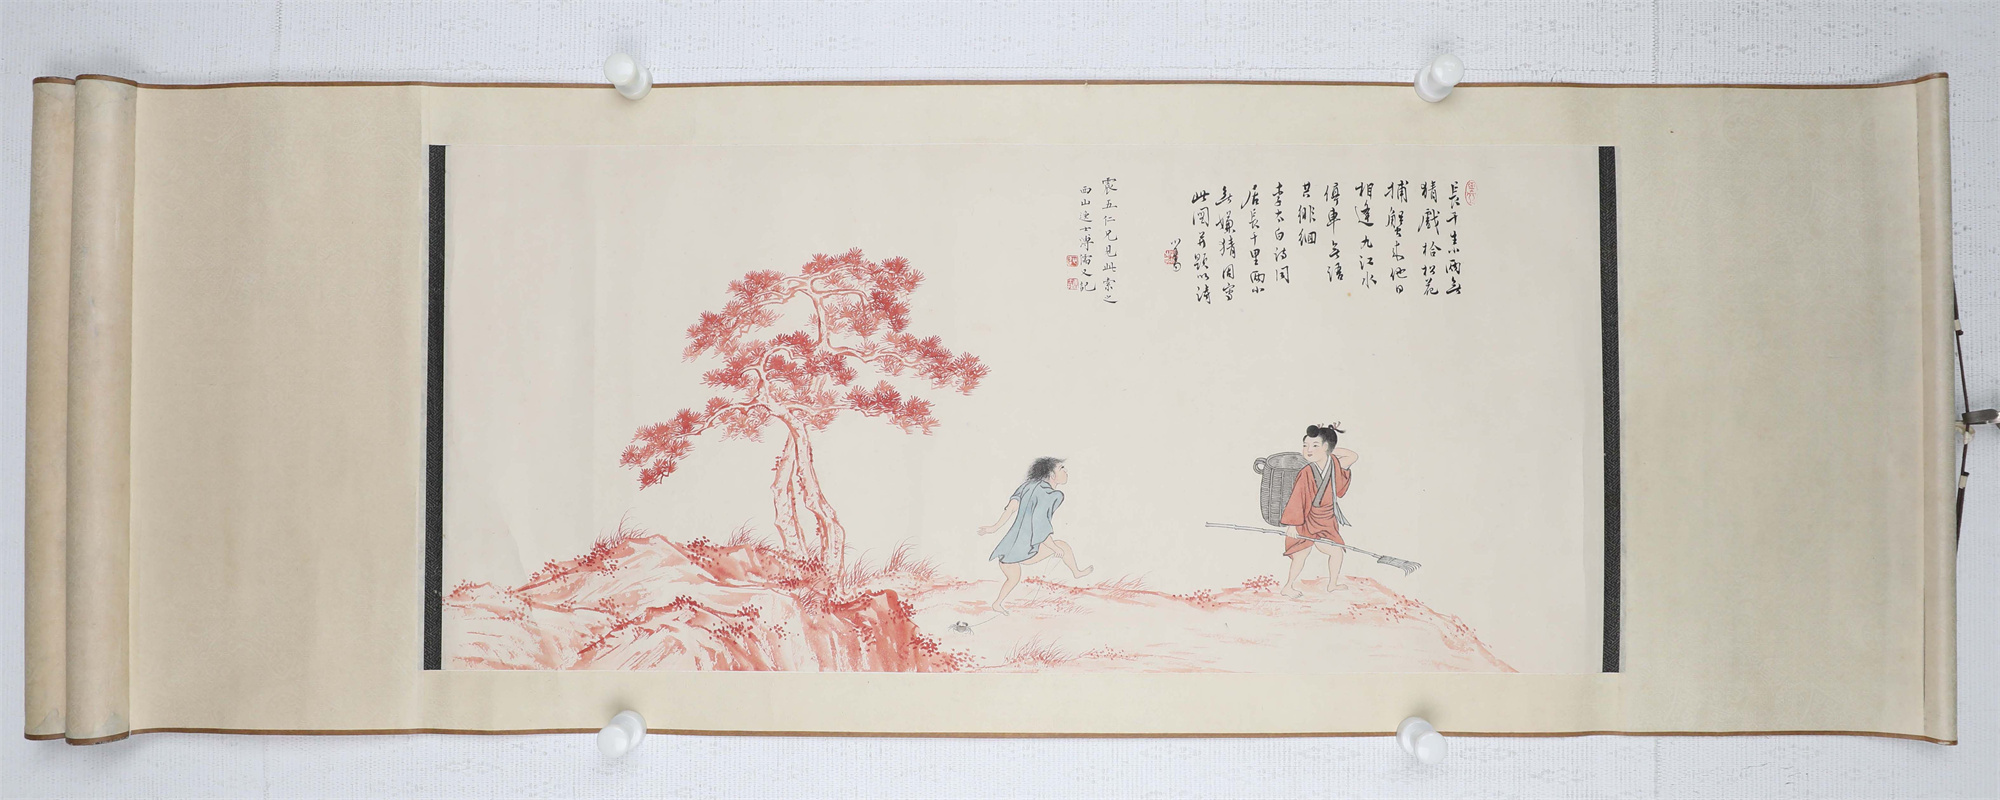 長干素兩無
猜戲拾松花
捕蟹來他日
相逢九江水
停車無語
共徘徊
李太白詩同
居長干里兩小
無嫌猜因寫
此圖并題以詩
心畬
震五仁兄見此索之
西山逸士溥儒又記